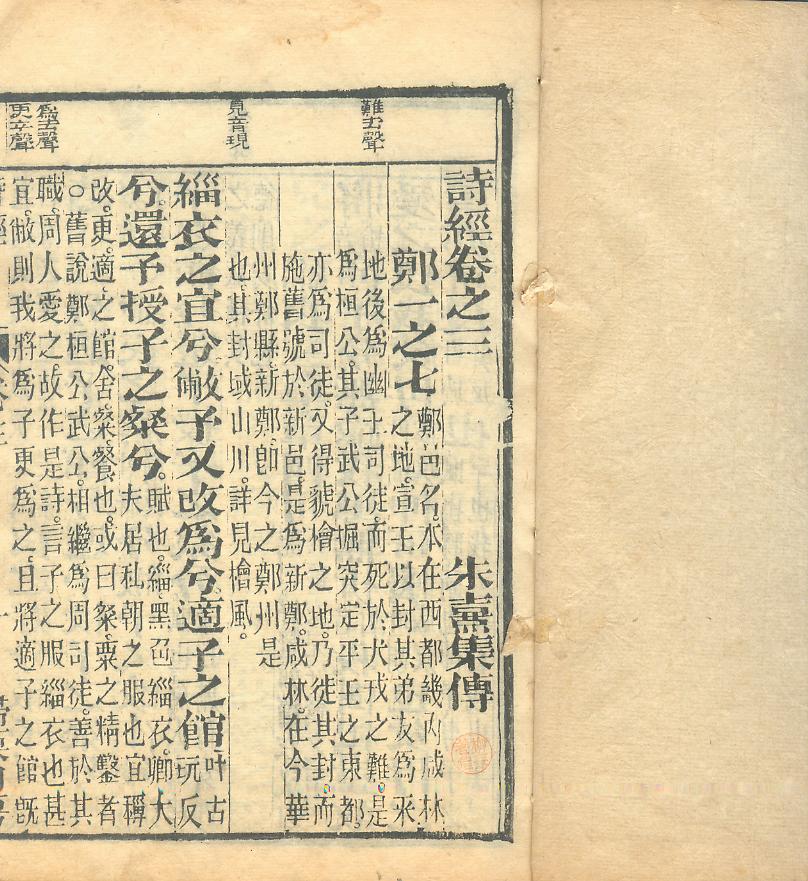 詩經卷之三
朱熹集傳
鄭一之七
鄭邑名本在西都畿內咸林
之地宣王以封其弟友為采
地後為幽王司徒而死於犬戎之難是
為桓公其子武公掘突定平王之東都
亦為司徒又得虢檜之地乃徙其封而
施舊號於新邑是為新鄭咸林在今華
州鄭縣新鄭即今之鄭州是
也其封域山川詳見檜風
緇衣之宜兮敝予又改為兮適子之館
叶古
玩反
兮還予授子之粲兮
賦也緇黑色緇衣卿大
夫居私朝之服也宜稱
改更適之館舍粲餐也或曰粲粟之精鑿者
○舊說鄭桓公武公相繼為周司徒善於其
職周人愛之故作是詩言子之服緇衣也甚
宜敝則我將為子更為之且將適子之館既
難去聲
見音現
為去聲
更平聲